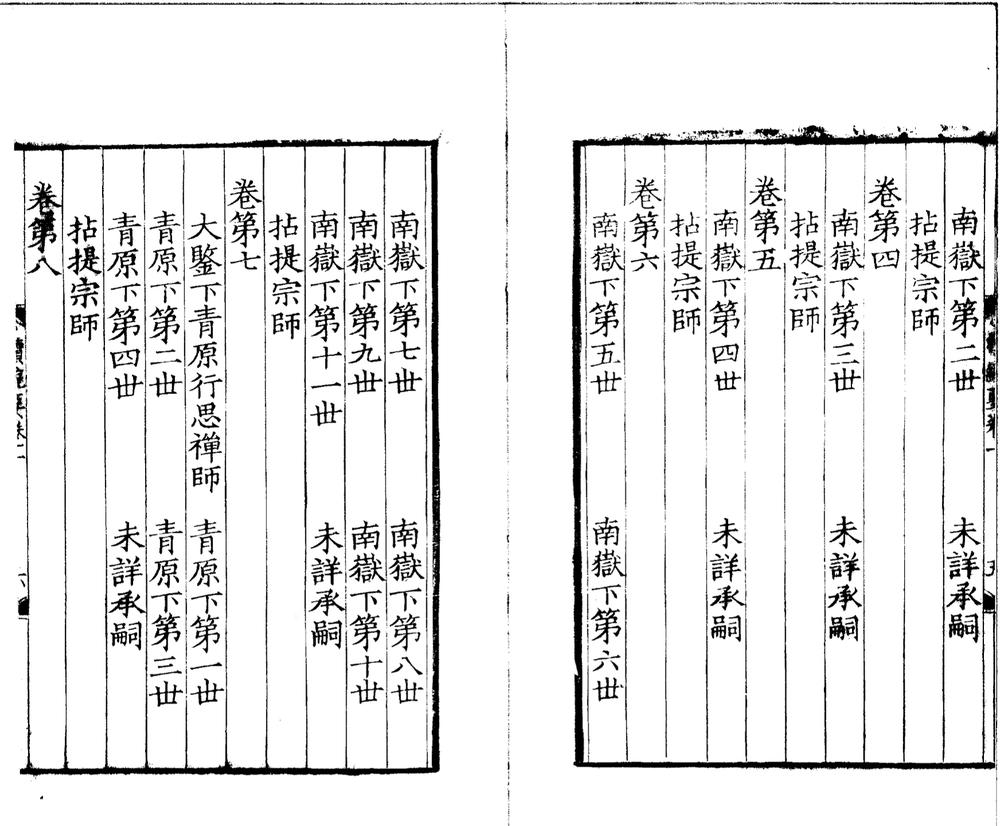 南嶽下第二丗 未詳承嗣
拈提宗師
卷第四
南嶽下第三丗 未詳承嗣
拈提宗師
卷第五
南嶽下第四丗 未詳承嗣
拈提宗師
卷第六
南嶽下第五丗 南嶽下第六丗
南嶽下第七丗 南嶽下第八丗
南嶽下第九丗 南嶽下第十丗
南嶽下第十一丗 未詳承嗣
拈提宗師
卷第七
大鑒下青原行思禪師 青原下第一丗
青原下第二丗 青原下第三丗
青原下第四丗 未詳承嗣
拈提宗師
卷第八